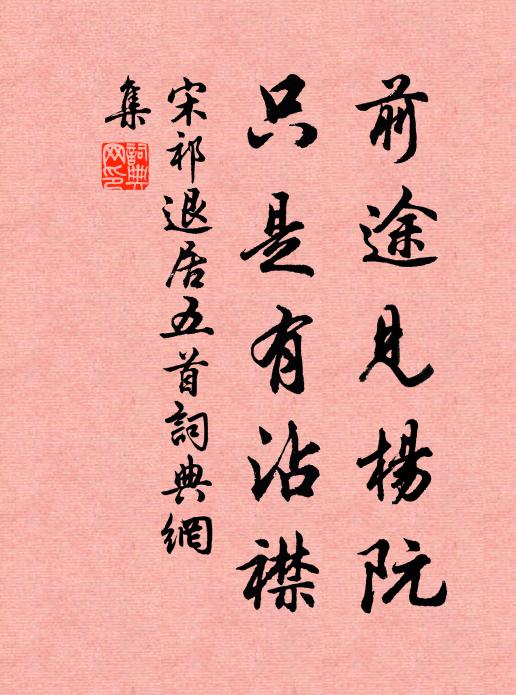 前途見楊阮
只是有沾襟
宋祁退居五首詞典網
集
詞典網印